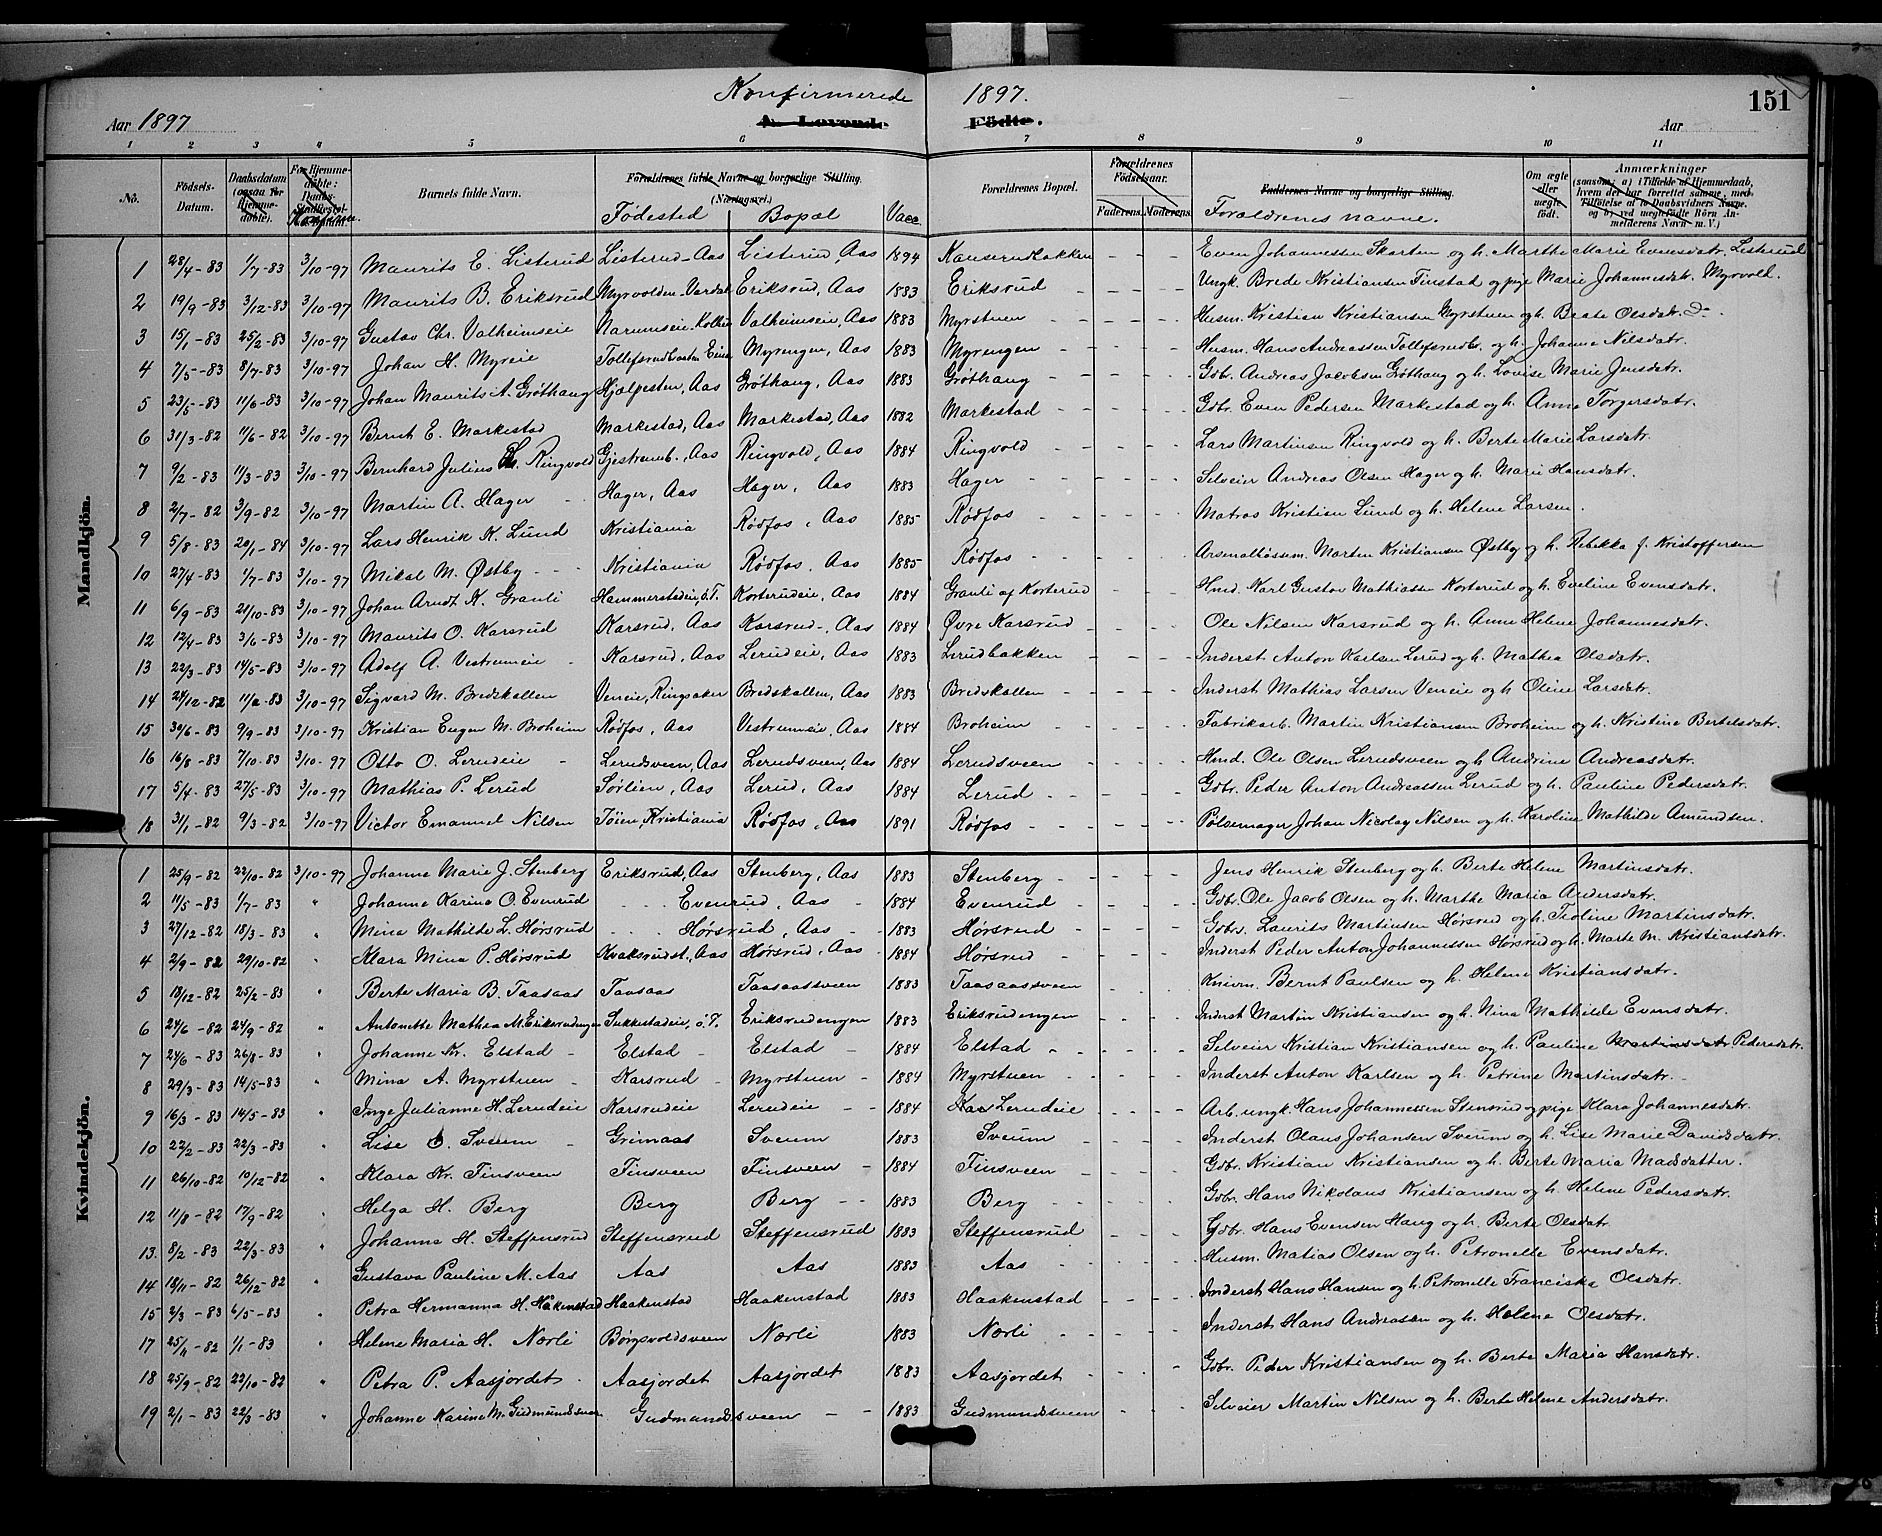 Konfirmerede 1897.
151
Aar 1897
A. Levende Födte.
Aar
1 2 3 4 5 6 7 8 9 10 11
No.
Födsels-Datum.
Daabsdatum (ogsaa for Hjemme-döbte).
For Hjemme-döbte: Daabs-
Barnets fulde Navn.
Forældrenes fulde Navne og borgerlige Stilling. (Næringsvei.)
Fødested Bopæl Vacc.
Forældrenes Bopæl.
Forældrenes Födselsaar.
Faderens. Moderens.
Faddernes Navne og borgerlige Stilling.
Forældrenes navne.
Om ægte eller uægte födt.
Anmærkninger (saasom: a) i Tilfælde af Hjemmedaab, hvem der har forrettet samme, med Tilföielse af to Daabsvidners Navne, og b) ved uægtefödte Börn Anmelderens Navn m. V.)
Mandkjön.
1 28/4-83 1/7-83 3/10-97 Maurits E. Listerud Listerud-Aas Listerud, Aas 1894 Kanserudbakken Even Johannessen Skarten og h. Marthe Marie Evensdatr. Listerud
2 19/9-83 3/12-83 3/10-97 Maurits B. Eriksrud Myrvolden-Vardal Eriksrud, Aas 1883 Eriksrud Ungk. Brede Kristiansen Finstad og pige Marie Johannesdatr. Myrvold.
3 15/1-83 25/2-83 3/10-97 Gustav Chr. Valheimseie Narumseie-Kolbu Valheimseie, Aas 1883 Myrstuen Husm. Kristian Kristiansen Myrstuen og h. Beate Olsdatr. do
4 7/5-83 8/7-83 3/10-97 Johan H. Myreie Tollefsrudbraaten Eina Myrengen, Aas 1883 Myrengen Husm. Hans Andreassen Tollefsrudbr. og h. Johanne Nilsdatr.
5 23/5-83 11/6-83 3/10-97 Johan Maurits A. Grøthaug Hjælpesten, Aas Grøthaug, Aas 1883 Grøthaug Gdbr. Andreas Jacobsen Grøthaug og h. Lovise Marie Jensdatr.
6 31/3-82 11/6-82 3/10-97 Bernt E. Markestad Markestad, Aas Markestad, Aas 1882 Markestad Gdbr. Even Pedersen Markestad og h. Anne Torgersdatr.
7 9/2-83 11/3-83 3/10-97 Bernhard Julius L. Ringvold Gjestrumb., Aas Ringvold, Aas 1884 Ringvold Lars Martinsen Ringvold og h. Berte Marie Larsdatr.
8 2/7-82 3/9-82 3/10-97 Martin A. Hager Hager, Aas Hager, Aas 1883 Hager Selveier Andreas Olsen Hager og h. Marie Hansdatr.
9 5/8-83 20/1-84 3/10-97 Lars Henrik K. Lund Kristiania Rødfos, Aas 1885 Rødfos Matros Kristien Lund og h. Helene Larsen.
10 27/4-83 1/7-83 3/10-97 Mikal M. Østby Kristiania Rødfos, Aas 1885 Rødfos Arsenalløsm. Martin Kristiansen Østby og h. Rebikka f. Kristoffersen
11 6/9-83 21/10-83 3/10-97 Johan Arndt K. Granli Hammerstadeie, ø.T. Korterudeie, Aas 1884 Granli af Korterud Hmd. Karl Gustav Mathiassen Korterud og h. Eveline Evensdatr.
12 12/4-83 3/6-83 3/10-97 Maurits O. Karsrud Karsrud, Aas Karsrud-, Aas 1884 Øvre Karsrud Ole Nilsen Karsrud og h. Anne Helene Johannesdatr.
13 22/3-83 14/5-83 3/10-97 Adolf A. Vestrumeie Karsrud, Aas Lerudeie, Aas 1883 Lerudbakken Inderst Anton Karlsen Lerud og h. Mathea Olsdatr.
14 24/12-82 11/2-83 3/10-97 Sigvard M. Bredskallen Veneie, Ringsaker Bredskallen, Aas 1883 Bredskallen Inderst Mathias Larsen Veneie og h. Oline Larsdatr.
15 30/6-83 9/9-83 3/10-97 Kristian Eugen M. Broheim Rødfos, Aas Vestrumeie, Aas 1884 Broheim Fabrikarb. Martin Kristiansen Broheim og h. Kristine Bertelsdatr.
16 16/8-83 7/10-83 3/10-97 Otto O. Lerudeie Lerudsveen, Aas Lerudsveen, Aas 1884 Lerudsveen Hmd. Ole Olsen Lerudsveen og h Andrine Andreasdatr.
17 5/4-83 27/5-83 3/10-97 Mathias P. Lerud Sørlien, Aas Lerud, Aas 1884 Lerud Gdbr. Peder Anton Andreassen Lerud og h. Pauline Pedersdatr.
18 3/1-82 9/3-82 3/10-97 Victor Emanuel Nilsen Tøien, Kristiania Rødfos, Aas 1891 Rødfos Pølsemager Johan Nicolay Nilsen og h. Karoline Mathilde Amundsen.
Kvindekjön.
1 25/9-82 22/10-82 3/10-97 Johanne Marie J. Stenberg Eriksrud, Aas Stenberg, Aas 1883 Stenberg Jens Henrik Stenberg og h. Berte Helene Martinsdatr.
2 11/5-83 1/7-83 " Johanne Karine O. Evenrud Evenrud, Aas 1884 Evenrud Gdbr. Ole Jacob Olsen og h. Marthe Maria Andersdatr.
3 27/12-82 18/3-83 " Mina Mathilde L. Hørsrud Hørsrud, Aas 1883 Hørsrud Gdbr. Laurits Martinsen Hørsrud og h. Teoline Martinsdatr.
4 2/9-82 29/10-82 " Klara Mina P. Hørsrud Kvaksrudst., Aas Hørsrud, Aas 1884 Hørsrud Inderst Peder Anton Johannessen Hørsrud og h. Marte M. Kristiansdatr.
5 18/12-82 25/2-83 " Berte Maria B. Taasaas Taasaas Taasaassveen 1883 Taasaassveen Knivm. Bernt Paulsen og h. Helene Kristiansdatr.
6 24/6-82 24/9-82 " Antonette Mathea M. Eriksrudengen Sukkestadeie, ø.T. Eriksrudengen 1883 Eriksrudengen Inderst Martin Kristiansen og h. Nina Mathilde Evensdatr.
7 24/6-83 26/8-83 " Johanne Kr. Elstad Elstad Elstad 1884 Elstad Selveier Kristian Kristiansen og h. Pauline Martinsdatr. Pedersdatr.
8 29/3-83 14/5-83 " Mina A. Myrstuen Karsrud Myrstuen 1884 Myrstuen Inderst Anton Karlsen og h. Petrine Martinsdatr.
9 16/3-83 14/5-83 " Inge Julianne H. Lerudeie Karsrudeie Lerudeie 1884 Kar Lerudeie Arb. ungk. Hans Johannessen Stensrud og pige Klara Johannesdatr.
10 22/2-83 22/3-83 " Lise O. Sveum Grimaas Sveum 1883 Sveum Inderst Olaus Johansen Sveum og h. Lise Marie Davidsdatr.
11 26/10-82 10/12-82 " Klara Kr. Finsveen Finsveen Finsveen 1884 Finsveen Gdbr. Kristian Kristiansen og h. Berte Maria Madsdatter.
12 11/8-82 17/9-82 " Helga H. Berg Berg Berg 1883 Berg Gdbr. Hans Nikolaus Kristiansen og h. Helene Pedersdatr.
13. 8/2-83 22/3-83 " Johanne H. Steffensrud Steffensrud Steffensrud 1883 Steffensrud Gdbr. Hans Evensen Haug og h. Berte Olsdatr.
14 18/11-82 26/12-82 " Gustava Pauline M. Aas Aas Aas 1883 Aas Husm. Matias Olsen og h. Petronelle Evensdatr.
15 2/3-83 6/5-83 " Petra Hermanna H. Haakenstad Haakenstad Haakenstad 1883 Haakenstad Inderst Hans Hansen og h. Petronelle Franciska Olsdatr.
17 25/11-82 1/1-83 " Helene Maria H. Norli Børgsvoldsveen Norli 1883 Norli Inderst Hans Andreassen og h. Helene Olsdatr.
18 25/9-82 22/10-82 " Petra P. Aasjordet Aasjordet Aasjordet 1883 Aasjordet Gdbr. Peder Kristiansen og h. Berte Maria Hansdatr.
19 2/1-83 22/3-83 " Johanne Karine M. Gudmundsveen Gudmundsveen 1883 Gudmundsveen Selveier Martin Nilsen og h. Berte Helene Andersdatr.